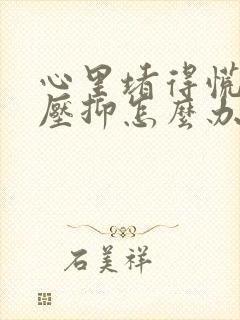 心里堵得慌
壓抑怎麼办
石美祥